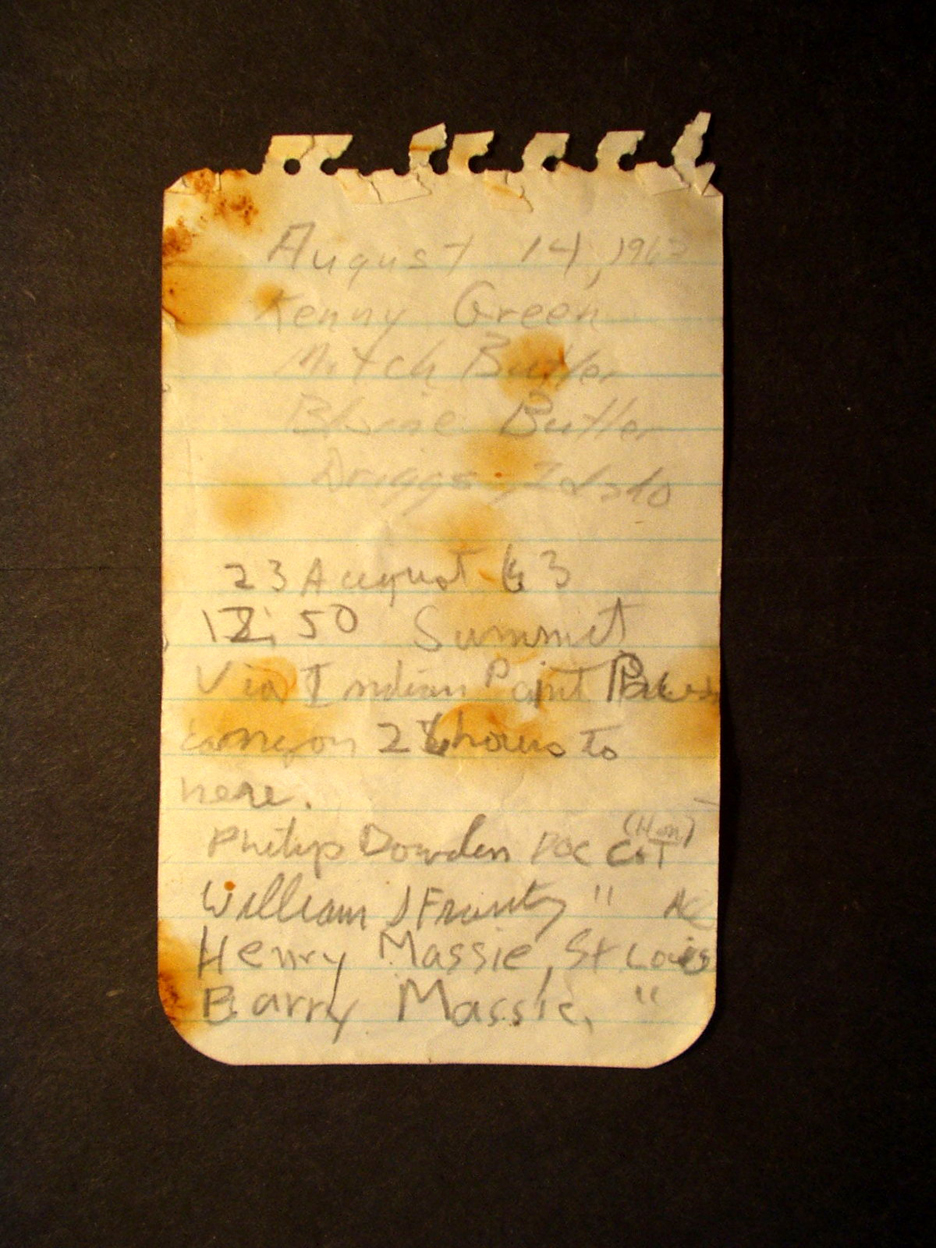 August 14, 1963
Kenny Green
Mitch Butler
Blaine Butler
Driggs, Idaho
23 August 63
12:50 Summit
Via Indian Paint Brush
canyon 2½ hours to
here.
Philip Dowden POC C&T (Hon)
William J Frantz " AC
Henry Massie, St Louis
Barry Massie, "